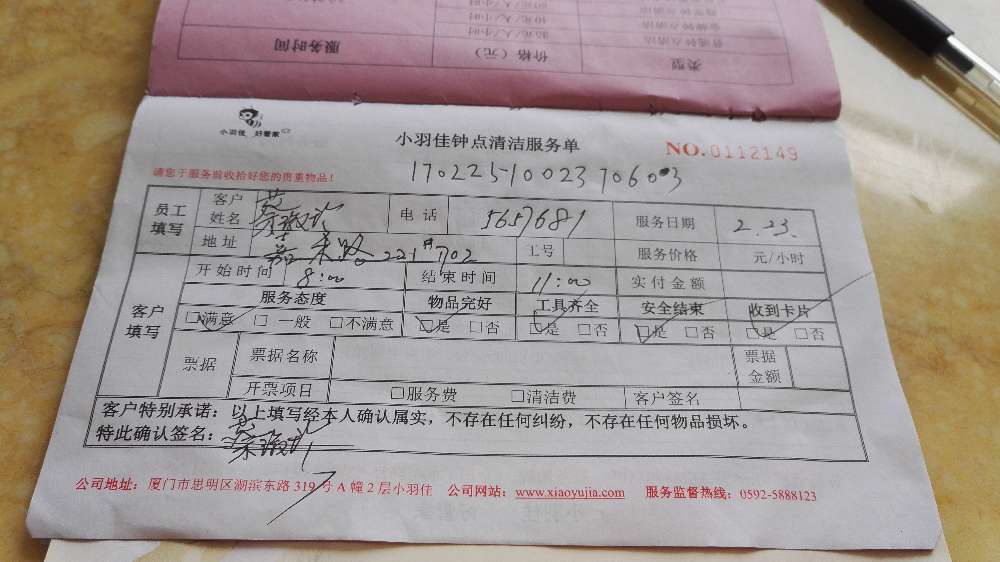 服务时间 价格（元） 类型
35元/人/小时
小羽佳 好管家
小羽佳钟点清洁服务单 NO.0112149
请您于服务前收拾好您的贵重物品！
170225-10023706003
员工填写 客户姓名 电话 5657681 服务日期 2.23.
地址 嘉禾路221#702 工号 服务价格 元/小时
客户填写 开始时间 8:00 结束时间 11:00 实付金额
服务态度 物品完好 工具齐全 安全结束 收到卡片
□满意 □一般 □不满意 □是 □否 □是 □否 □是 □否 □是 □否
票据 票据名称 票据金额
开票项目 □服务费 □清洁费 客户签名
客户特别承诺：以上填写经本人确认属实，不存在任何纠纷，不存在任何物品损坏。
特此确认签名：
公司地址：厦门市思明区湖滨东路319号A幢2层小羽佳 公司网站：www.xiaoyujia.com 服务监督热线：0592-5888123